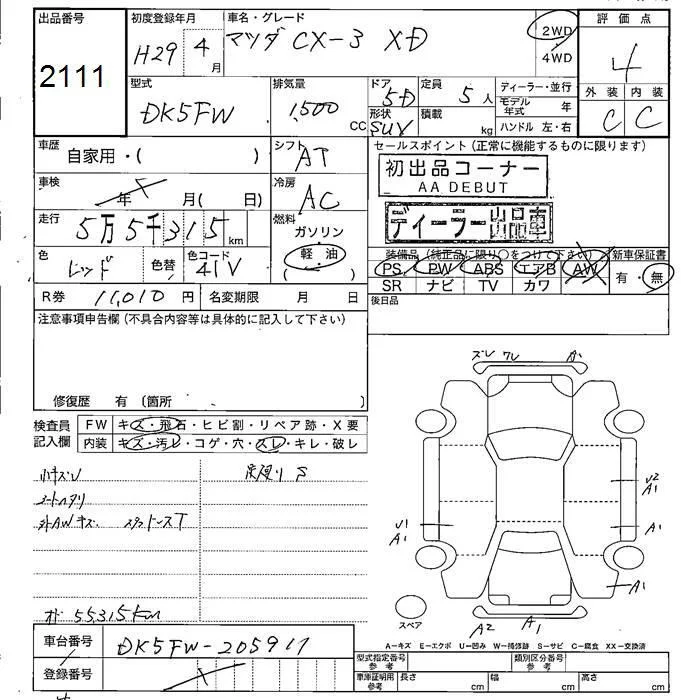 出品番号 初度登録年月 車名・グレード 評価点
2111 H29 4月 マツダ CX-3 XD 2WD 4WD 4
型式 排気量 ドア 定員 ディーラー・並行 外装 内装
DK5FW 1,500 CC 5D 5人 モデル年式 年 C C
形状 SUV 積載 kg ハンドル 左・右
車歴 自家用・( ) シフト AT セールスポイント (正常に機能するものに限ります)
初出品コーナー
AA DEBUT
車検 年 月( 日) 冷房 AC
ディーラー出品車
走行 5万5千315km 燃料 ガソリン
軽油
( )
色 レッド 色替 色コード 41V
装備品 (純正品に限り○をつけて下さい) 新車保証書
PS PW ABS エアB AW 有・無
SR ナビ TV カワ
R券 11,010円 名変期限 月 日 後日品
注意事項申告欄 (不具合内容等は具体的に記入して下さい)
修復歴 有 (箇所 )
ズレ ワレ A1
検査員記入欄 FW キズ・飛石・ヒビ割・リペア跡・X要
内装 キズ・汚レ・コゲ・穴・スレ・キレ・破レ
小キズU
シートヘタリ
外AWキズ
U2
A1
U1
A1
A1
A1
スペア
A2 A1
オド 55315km
A=キズ E=エクボ U=凹み W=補修跡 S=サビ C=腐食 XX=交換済
車台番号 DK5FW-205917
登録番号
型式指定番号 参考 類別区分番号 参考
車庫証明用 参考 長さ cm 幅 cm 高さ cm